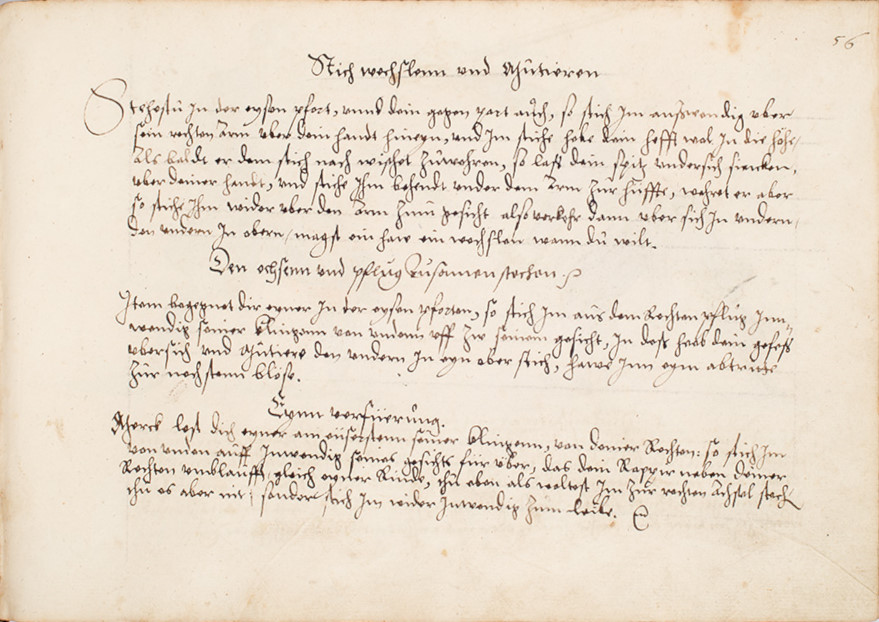 56
Stich wechslenn und Mutieren
Stehestu In der eysen pfort, unnd dein gegen part auch, so stich Im auswendig uber
sein rechten Arm uber dein handt hineyn, und Im stiche hebe dein hefft wol In die höhe,
Als baldt er dem stich nach wischet zuwehren, so lass dein spitz undersich siencken,
uber deiner handt, und stiche Ihm behendt under dem Arm zur hüffte, wehret er aber
so stiche Ihm wider uber den Arm zum gesicht also verkehr dann uber sich In undern,
den undern In obern, magst ein haw ein wechslen wann du wilt.
Den ochsenn und pflug zusamen stechen.
Item begegnet dir eyner In der eysen pforten, so stich Im aus dem Rechten pflug Inn¬
wendig seiner klingenn von undenn uff zu seinem gesicht, In dess heb dein gefess
ubersich und Mutiere den undern In eyn ober stich, hawe Inn eynn abtrage
zur nechstenn blöse.
Eynn verfüerung.
Merck lest dich eyner am eüserstenn seiner klingenn, von deiner Rechten: so stich Im
von unden auff Inwendig seines gesichts für uber, das dein Rappir neben deiner
Rechten umblaufft, gleich eyner Rinde, thu eben als woltest Im zur rechten Achsel stechen
thu es aber nit, sonder stich Im wider Inwendig zum leibe.